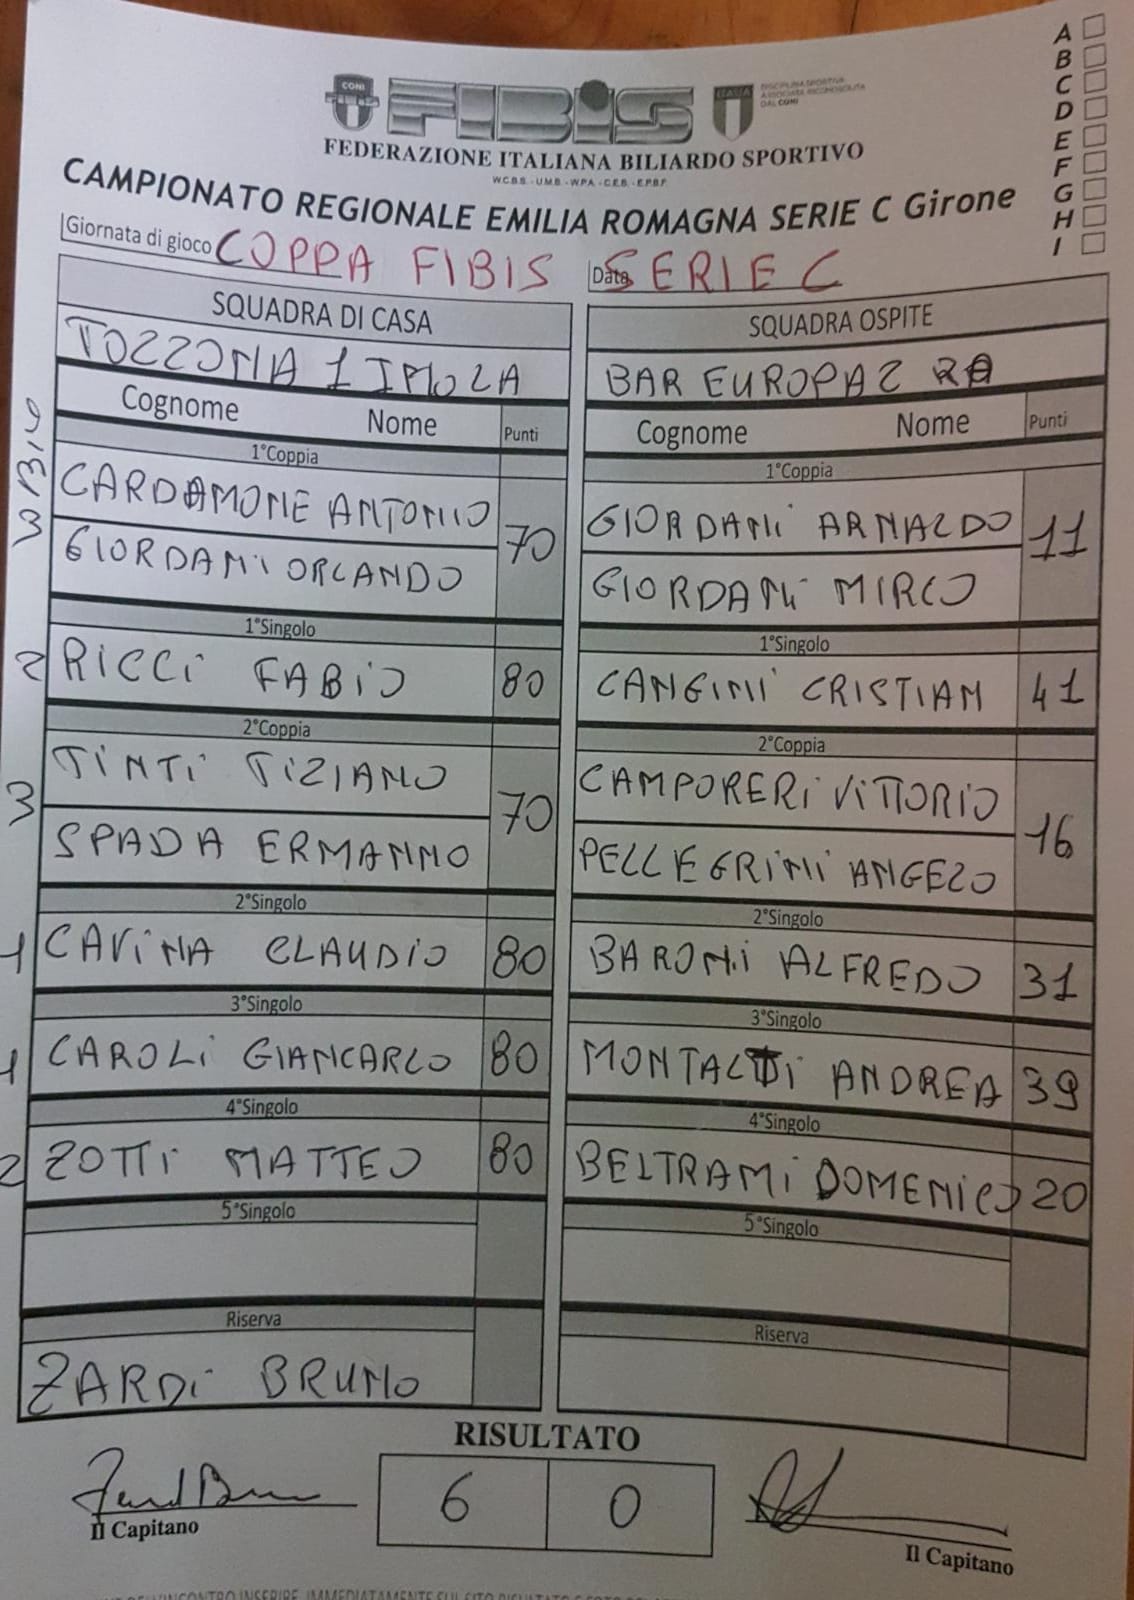 A
B
C
D
E
F
G
H
I
CONI
FIBiS
ITALIA
DISCIPLINA SPORTIVA
ASSOCIATA RICONOSCIUTA
DAL CONI
FEDERAZIONE ITALIANA BILIARDO SPORTIVO
W.C.B.S. - U.M.B. - W.P.A. - C.E.B. - E.P.B.F.
CAMPIONATO REGIONALE EMILIA ROMAGNA SERIE C Girone
Giornata di gioco COPPA FIBIS Data SERIE C
SQUADRA DI CASA SQUADRA OSPITE
TOZZONA 1 IMOLA BAR EUROPA 2 RA
Cognome Nome Punti Cognome Nome Punti
1°Coppia 1°Coppia
CARDAMONE ANTONIO 70 GIORDANi ARNALDO 11
GIORDANi ORLANDO GIORDANi MIRCO
1°Singolo 1°Singolo
2 RiCCi FABiO 80 CANGINi CRISTIAN 41
2°Coppia 2°Coppia
3 TiNTi TiZIANO 70 CAMPORERi ViTTORIO 16
SPADA ERMANNO PELLEGRiNi ANGELO
2°Singolo 2°Singolo
1 CAViNA CLAUDiO 80 BARONi ALFREDO 31
3°Singolo 3°Singolo
1 CAROLi GIANCARLO 80 MONTALTi ANDREA 39
4°Singolo 4°Singolo
2 ZOTTi MATTEO 80 BELTRAMi DOMENiCO 20
5°Singolo 5°Singolo
Riserva Riserva
ZARDi BRUNO
RISULTATO
6 0
Il Capitano Il Capitano